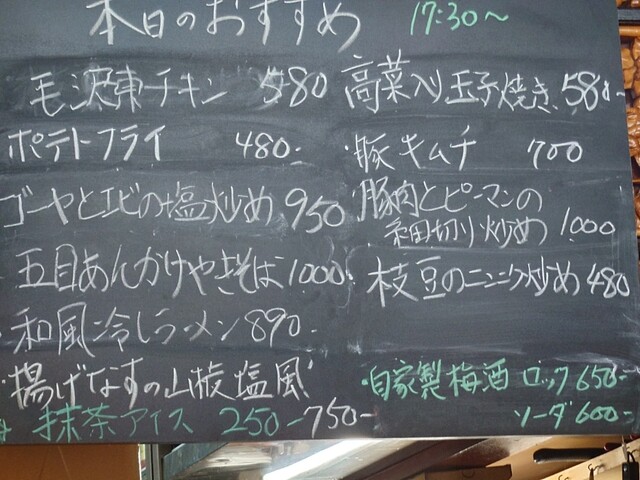 本日のおすすめ 17:30〜
毛沢東チキン 580
ポテトフライ 480-
ゴーヤとエビの塩炒め 950
五目あんかけやきそば 1000
和風冷しラーメン 890-
揚げなすの山椒塩風
750-
抹茶アイス 250-
高菜入り玉子焼き 580-
・豚キムチ 700
豚肉とピーマンの
細切り炒め 1000
枝豆のニンニク炒め 480
・自家製梅酒 ロック 650-
ソーダ 600-